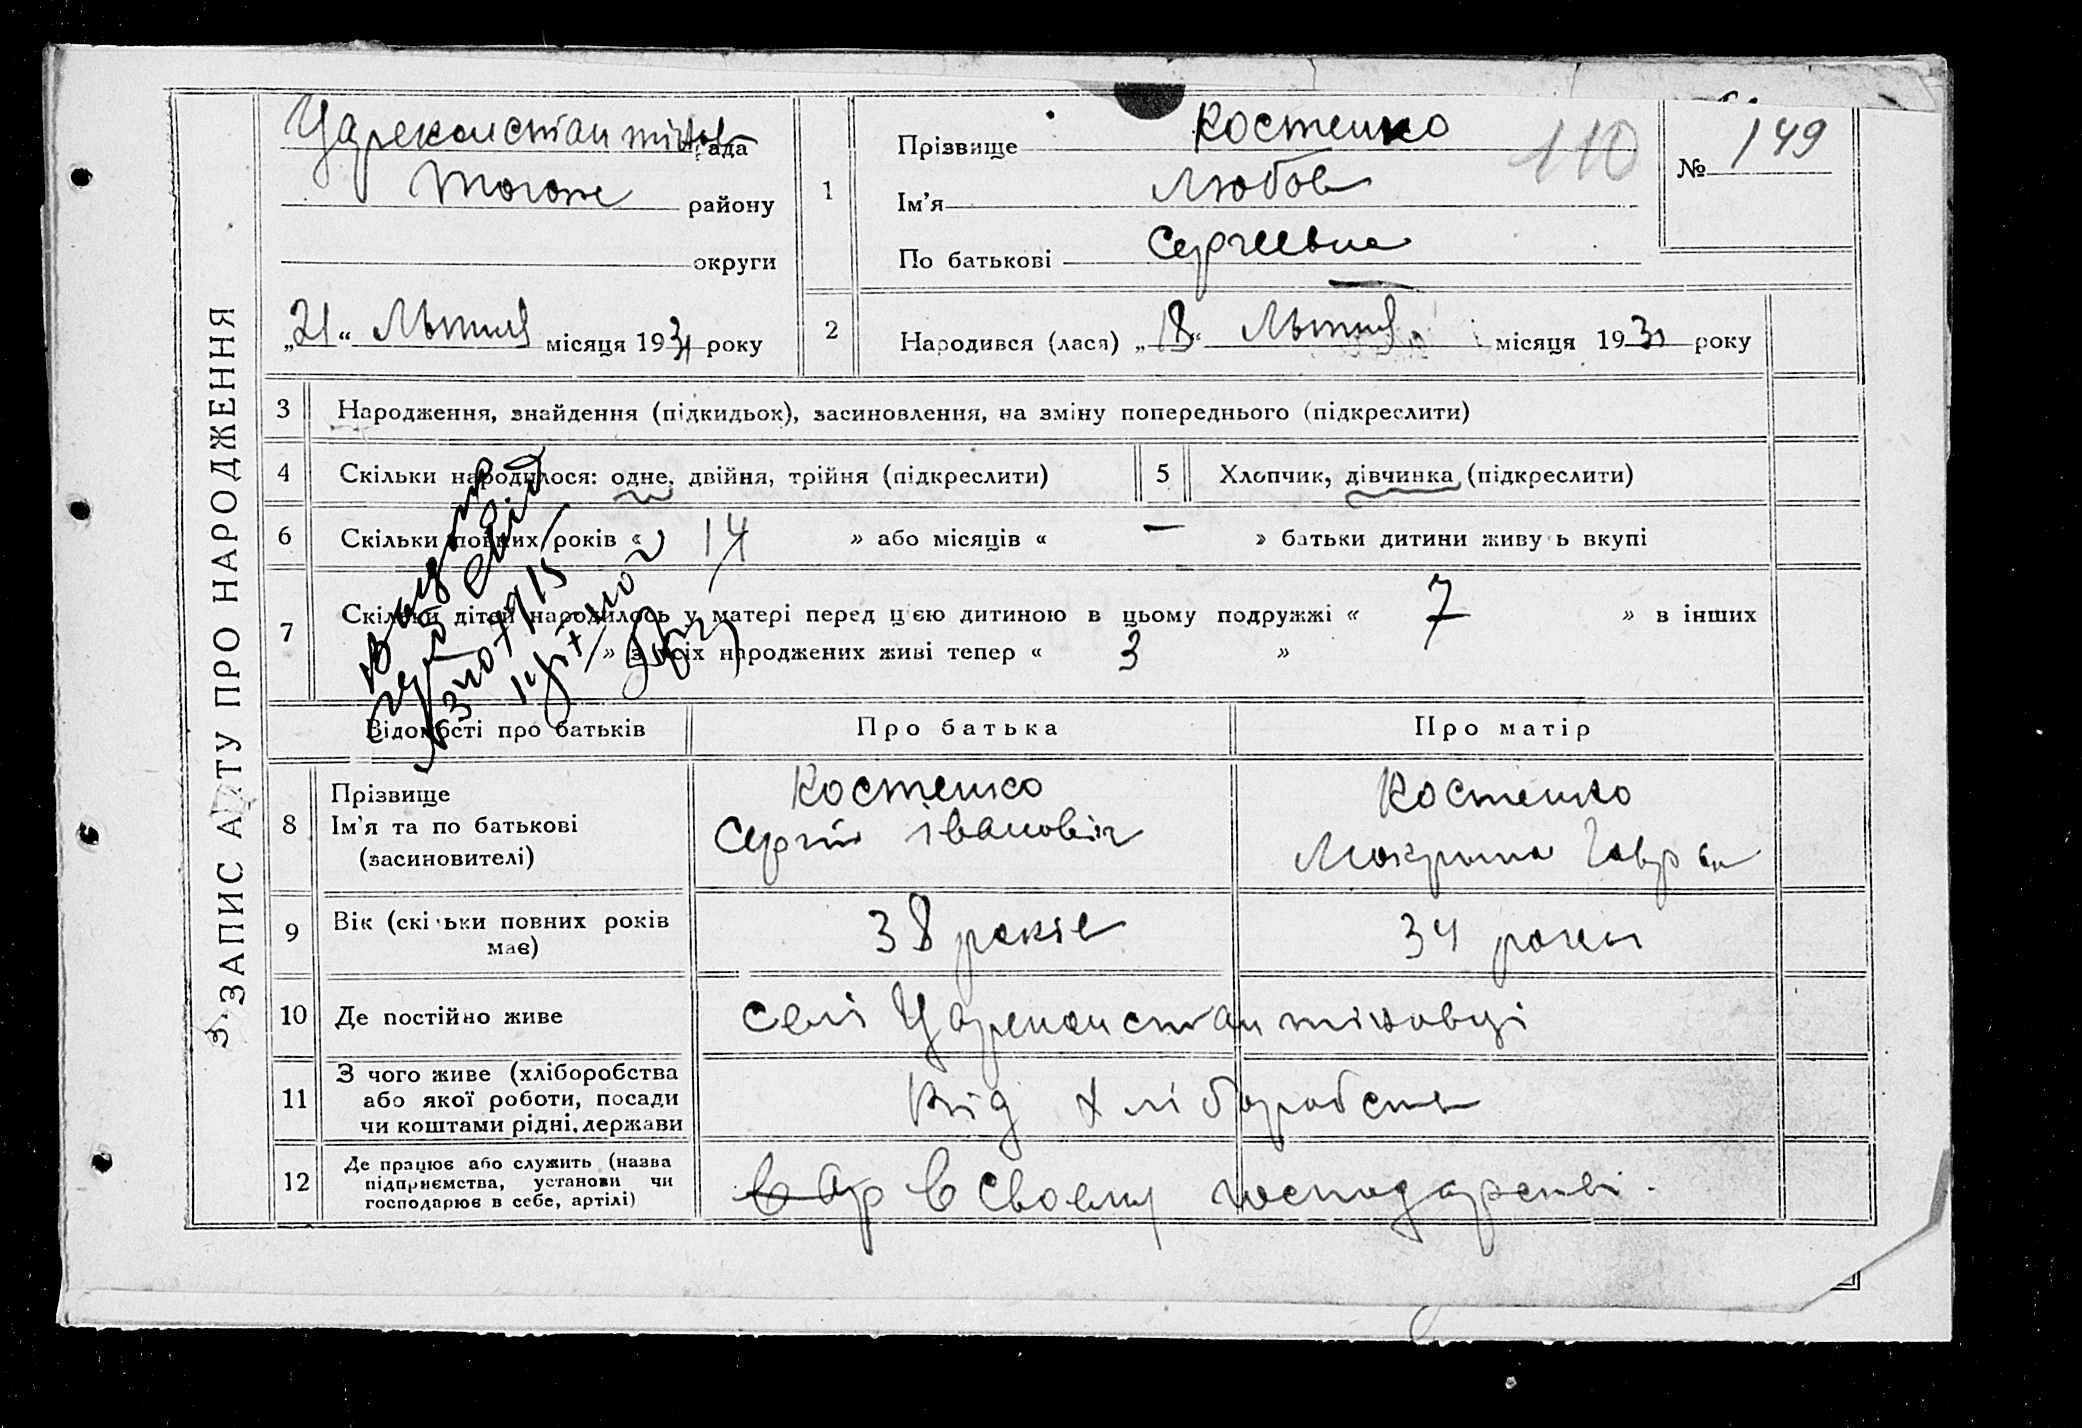 З. ЗАПИС АКТУ ПРО НАРОДЖЕННЯ
Цареконстантинів рада
Тогоже району
округи
„21“ Лютня місяця 1931 року
1
Прізвище Костенко
Ім'я Любов
По батькові Сергеевна
110
№ 149
2
Народився (лася) „18“ Лютня місяця 1931 року
3 Народження, знайдення (підкидьок), засиновлення, на зміну попереднього (підкреслити)
4 Скільки народилося: одне, двійня, трійня (підкреслити)
5 Хлопчик, дівчинка (підкреслити)
6 Скільки повних років « 14 » або місяців « — » батьки дитини живуть вкупі
7 Скільки дітей народилось у матері перед цією дитиною в цьому подружжі « 7 » в інших
» з усіх народжених живі тепер « 3 »
Відомості про батьків
Про батька
Про матір
8 Прізвище
Ім'я та по батькові
(засиновителі)
Костенко
Сергій Іванович
Костенко
Мокрина Гавр
9 Вік (скільки повних років
має)
38 років
34 роки
10 Де постійно живе
селі Цареконстантиновці
11 З чого живе (хліборобства
або якої роботи, посади
чи коштами рідні, держави
Від хліборобства
12 Де працює або служить (назва
підприємства, установи чи
господарює в себе, артілі)
в своему господарстві.